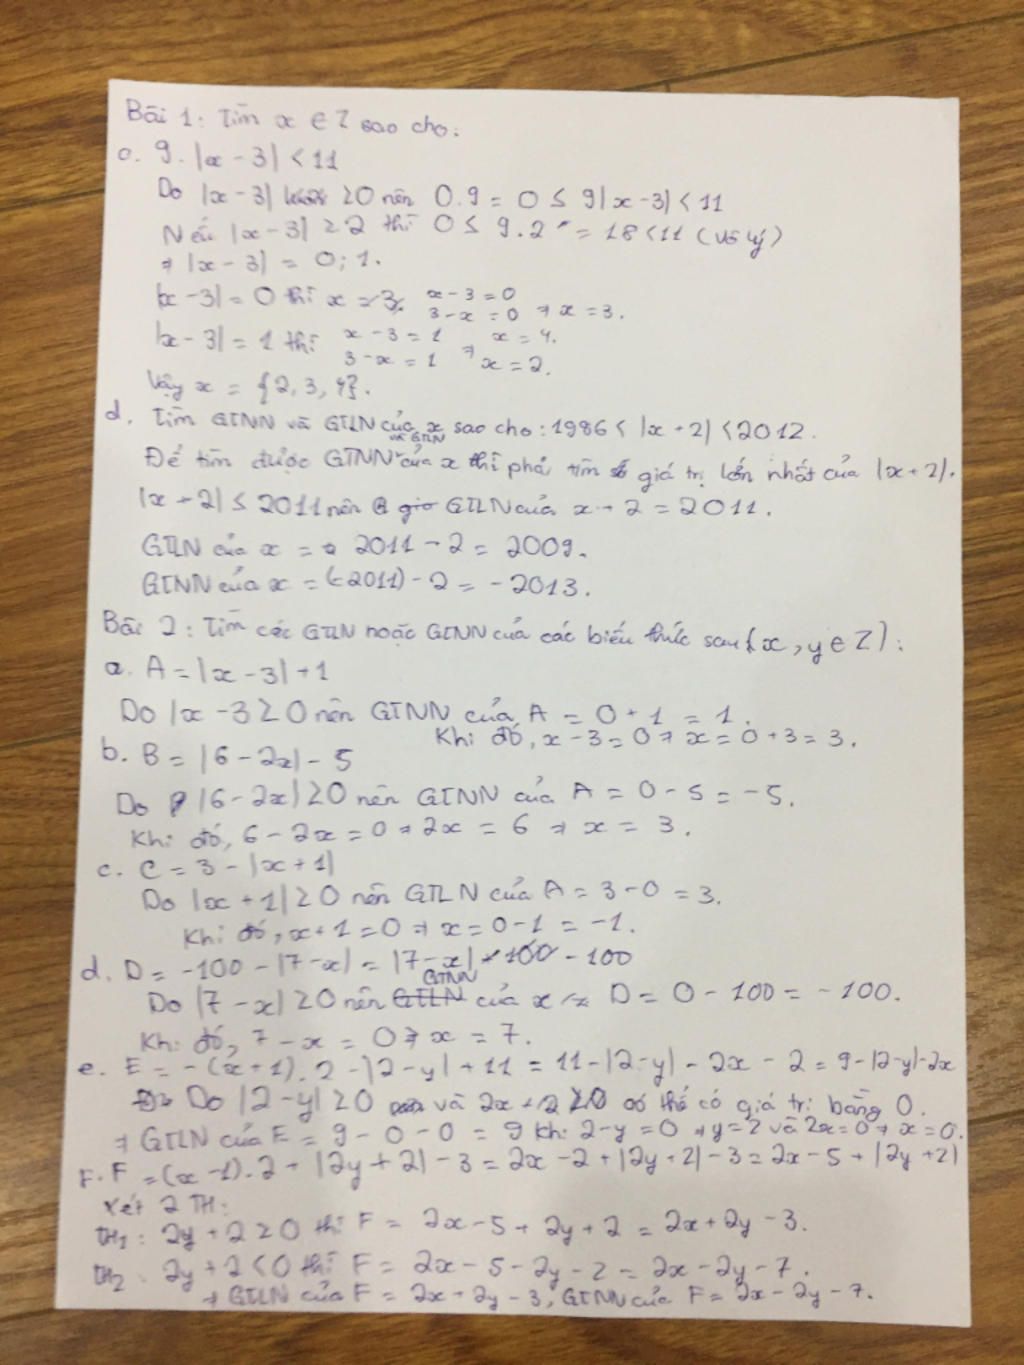 Bài 1: Tìm x ∈ Z sao cho:
c. 9. |x - 3| < 11
Do |x - 3| ≥ 0 nên 0.9 = 0 ≤ 9|x - 3| < 11
Nếu |x - 3| ≥ 2 thì 0 ≤ 9.2 = 18 < 11 (vô lý)
⇒ |x - 3| = 0; 1.
|x - 3| = 0 thì x = 3; x - 3 = 0
3 - x = 0 ⇒ x = 3.
|x - 3| = 1 thì x - 3 = 1 ⇒ x = 4.
3 - x = 1 x = 2.
Vậy x = {2, 3, 4}.
d. Tìm GTNN và GTLN của x sao cho: 1986 < |x + 2| < 2012.
Để tìm được GTNN và GTLN của x thì phải tìm giá trị lớn nhất của |x + 2|.
|x + 2| ≤ 2011 nên GTLN của x + 2 = 2011.
GTLN của x = 2011 - 2 = 2009.
GTNN của x = (-2011) - 2 = - 2013.
Bài 2: Tìm các GTLN hoặc GTNN của các biểu thức sau (x, y ∈ Z):
a. A = |x - 3| + 1
Do |x - 3 ≥ 0 nên GTNN của A = 0 + 1 = 1.
Khi đó, x - 3 = 0 ⇒ x = 0 + 3 = 3.
b. B = |6 - 2x| - 5
Do |6 - 2x| ≥ 0 nên GTNN của A = 0 - 5 = - 5.
Khi đó, 6 - 2x = 0 ⇒ 2x = 6 ⇒ x = 3.
c. C = 3 - |x + 1|
Do |x + 1| ≥ 0 nên GTLN của A = 3 - 0 = 3.
Khi đó, x + 1 = 0 ⇒ x = 0 - 1 = -1.
d. D = -100 - |7 - x| = |7 - x| - 100 - 100
Do |7 - x| ≥ 0 nên GTNN của x D = 0 - 100 = - 100.
Khi đó, 7 - x = 0 ⇒ x = 7.
e. E = - (x + 1). 2 - |2 - y| + 11 = 11 - |2 - y| - 2x - 2 = 9 - |2 - y| - 2x
Do |2 - y| ≥ 0 và 2x + 2 ≥ 0 có thể có giá trị bằng 0.
⇒ GTLN của E = 9 - 0 - 0 = 9 khi 2 - y = 0 ⇒ y = 2 và 2x = 0 ⇒ x = 0.
F. F = (x - 1). 2 + |2y + 2| - 3 = 2x - 2 + |2y + 2| - 3 = 2x - 5 + |2y + 2|
Xét 2 TH:
TH1: 2y + 2 ≥ 0 thì F = 2x - 5 + 2y + 2 = 2x + 2y - 3.
TH2: 2y + 2 < 0 thì F = 2x - 5 - 2y - 2 = 2x - 2y - 7.
⇒ GTLN của F = 2x + 2y - 3, GTNN của F = 2x - 2y - 7.